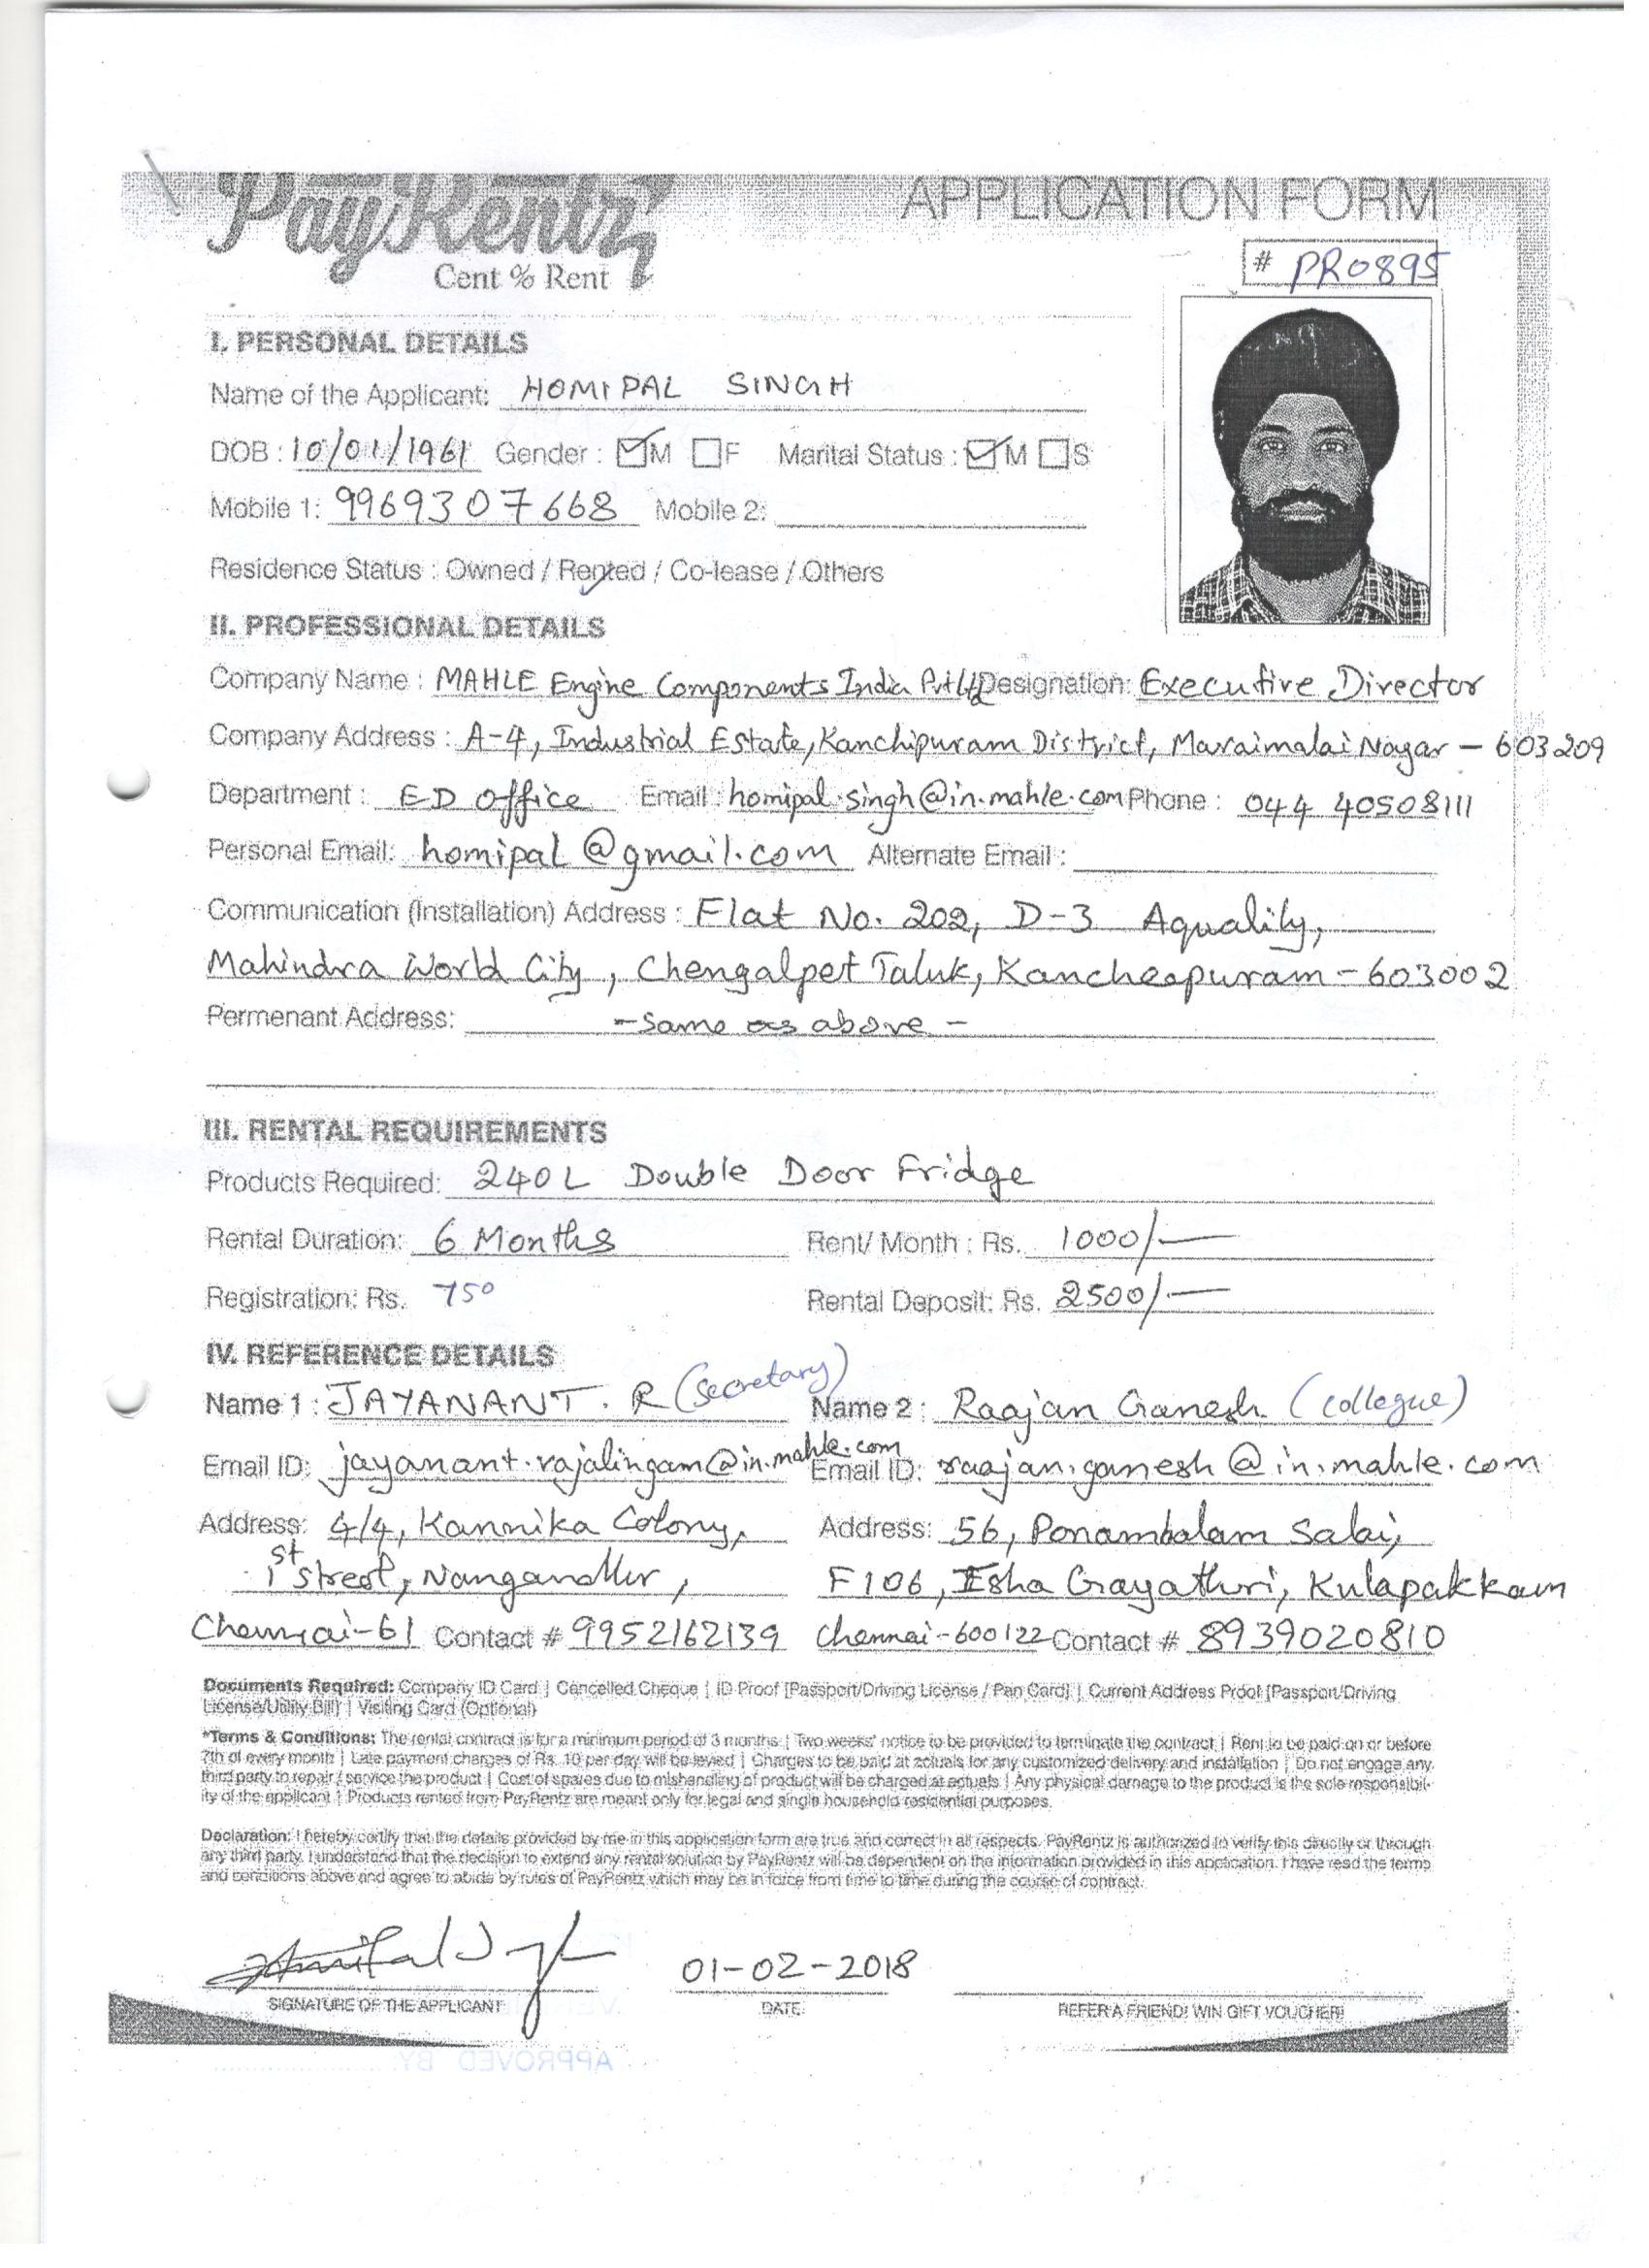 PayRentz
Cent % Rent
APPLICATION FORM
# PR0895
I. PERSONAL DETAILS
Name of the Applicant: HOMIPAL SINGH
DOB : 10/01/1961 Gender : M F Marital Status : M S
Mobile 1: 9969307668 Mobile 2:
Residence Status : Owned / Rented / Co-lease / Others
II. PROFESSIONAL DETAILS
Company Name : MAHLE Engine Components India Pvt Ltd Designation: Executive Director
Company Address : A-4, Industrial Estate, Kanchipuram District, Maraimalai Nagar - 603209
Department : ED Office Email : homipal.singh@in.mahle.com Phone : 044 40508111
Personal Email: homipal@gmail.com Alternate Email :
Communication (Installation) Address : Flat No. 202, D-3 Aquality,
Mahindra World City, Chengalpet Taluk, Kancheepuram - 603002
Permenant Address: - Same as above -
III. RENTAL REQUIREMENTS
Products Required: 240L Double Door Fridge
Rental Duration: 6 Months Rent/ Month : Rs. 1000/-
Registration: Rs. 750 Rental Deposit: Rs. 2500/-
IV. REFERENCE DETAILS
Name 1 : JAYANANT. R (Secretary) Name 2 : Raajan Ganesh (Collegue)
Email ID: jayanant.rajalingam@in.mahle.com Email ID: raajan.ganesh@in.mahle.com
Address: 4/4, Kannika Colony, Address: 56, Ponambalam Salai,
1st Street, Nanganallur, F106, Esha Gayathri, Kulapakkam
Chennai-61 Contact # 9952162139 Chennai-600122 Contact # 8939020810
Documents Required: Company ID Card | Cancelled Cheque | ID Proof [Passport/Driving License / Pan Card] | Current Address Proof [Passport/Driving
License/Utility Bill] | Visiting Card (Optional)
*Terms & Conditions: The rental contract is for a minimum period of 3 months | Two weeks' notice to be provided to terminate the contract | Rent to be paid on or before
7th of every month | Late payment charges of Rs. 10 per day will be levied | Charges to be paid at actuals for any customized delivery and installation | Do not engage any
third party to repair / service the product | Cost of spares due to mishandling of product will be charged at actuals | Any physical damage to the product is the sole responsibil-
ity of the applicant | Products rented from PayRentz are meant only for legal and single household residential purposes.
Declaration: I hereby certify that the details provided by me in this application form are true and correct in all respects. PayRentz is authorized to verify this directly or through
any third party. I understand that the decision to extend any rental solution by PayRentz will be dependent on the information provided in this application. I have read the terms
and conditions above and agree to abide by rules of PayRentz which may be in force from time to time during the course of contract.
Homipal Singh 01-02-2018
SIGNATURE OF THE APPLICANT DATE REFER A FRIEND! WIN GIFT VOUCHER!
APPROVED BY